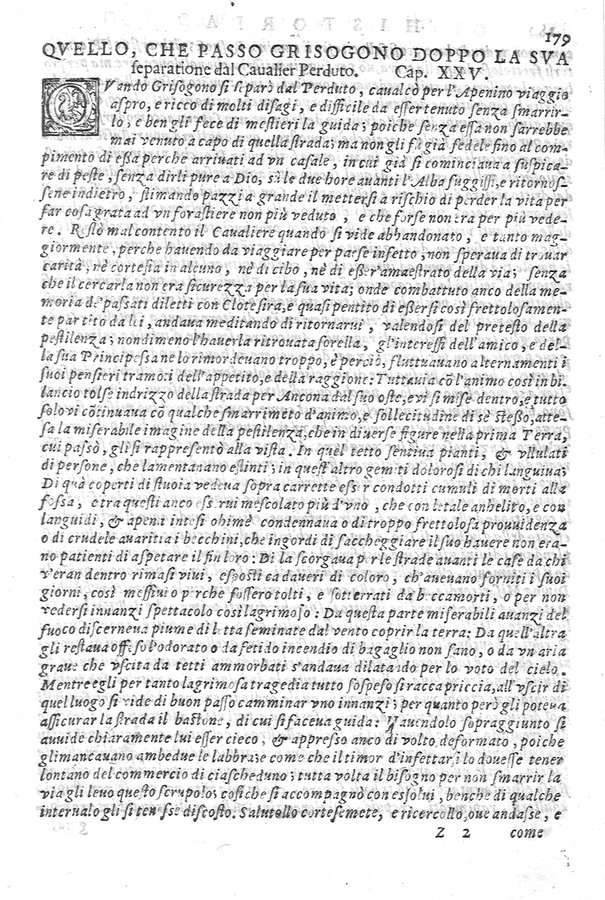 179
QVELLO, CHE PASSO GRISOGONO DOPPO LA SVA
ſeparatione dal Caualier Perduto. Cap. XXV.
QVando Griſogono ſi ſeparò dal Perduto, caualcò per l'Apenino viaggio
aſpro, e ricco di molti diſagi, e difficile da eſſer tenuto ſenza ſmarrir-
lo; e ben gli fece di meſtieri la guida; poiche ſenza eſſa non ſarebbe
mai venuto a capo di quella ſtrada; ma non gli fù già fedele fino al com-
pimento di eſſa perche arriuati ad vn caſale, in cui già ſi cominciaua a ſuſpica-
re di peſte, ſenza dirli pure a Dio, sù le due hore auanti l'Alba fuggiſſi, e ritornoſ-
ſene indietro, ſtimando pazzia grande il metterſi a riſchio di perder la vita per
far coſa grata ad vn foraſtiere non più veduto, e che forſe non era per più vede-
re. Reſtò mal contento il Caualiere quando ſi vide abbandonato, e tanto mag-
giormente, perche hauendo da viaggiare per paeſe infetto, non ſperaua di trouar
carità, nè corteſia in alcuno, nè di cibo, nè di eſſer'amaeſtrato della via; ſenza
che il cercarla non era ſicurezza per la ſua vita; onde combattuto anco della me-
moria de'paſſati diletti con Cloteſira, e quaſi pentito di eſſerſi così frettoloſamen-
te partito da lei, andaua meditando di ritornarui, valendoſi del preteſto della
peſtilenza; nondimeno l'hauerla ritrouata ſorella, gl'intereſſi dell'amico, e del-
la ſua Principeſſa ne lo rimordeuano troppo, e perciò, fluttuauano alternamenti i
ſuoi penſieri tra moti dell'appetito, e della raggione: Tuttauia cō l'animo così in bi-
lancio tolſe indrizzo della ſtrada per Ancona dal ſuo oſte, e vi ſi miſe dentro, e tutto
ſolo vi cōtinuaua cō qualche ſmarrimēto d'animo, e ſollecitudine di sè ſteſſo, atte-
ſa la miſerabile imagine della peſtilenza, che in diuerſe figure nella prima Terra,
cui paſsò, gli ſi rappreſentò alla viſta. In quel tetto ſentiua pianti, & vllulati
di perſone, che lamentauano eſtinti; in queſt'altro gemiti doloroſi di chi languiua;
Di quà coperti di ſtuoia vedeua ſopra carrette eſſer condotti cumuli di morti alla
foſſa, e tra queſti anco eſſerui meſcolato più d'vno, che con letale anhelito, e con
languidi, & apena inteſi ohimè condennaua o di troppo frettoloſa prouuidenza
o di crudele auaritia i becchini, che ingordi di ſaccheggiare il ſuo hauere non era-
no patienti di aſpetare il fin loro: Di la ſcorgaua per le ſtrade auanti le caſe da chi
v'eran dentro rimaſi viui, eſpoſti cadaueri di coloro, ch'aueuano forniti i ſuoi
giorni, così meſſiui o perche foſſero tolti, e ſotterrati da beccamorti, o per non
vederſi innanzi ſpettacolo così lagrimoſo: Da queſta parte miſerabili auanzi del
fuoco diſcerneua piume di letta ſeminate dal vento coprir la terra: Da quell'altra
gli reſtaua offeſo l'odorato o da fetido incendio di bagaglio non ſano, o da vn aria
graue che vſcita da tetti ammorbati s'andaua dilatando per lo voto del cielo.
Mentre egli per tanto lagrimoſa tragedia tutto ſoſpeſo ſi raccapriccia, all'vſcir di
quel luogo ſi vide di buon paſſo camminar vno innanzi; per quanto però gli poteua
aſſicurar la ſtrada il baſtone, di cui ſi faceua guida: Hauendolo ſopraggiunto ſi
auuide chiaramente lui eſſer cieco, & appreſſo anco di volto deformato, poiche
gli mancauano ambedue le labbra; e come che il timor d'infettarſi lo doueſſe tener
lontano del commercio di ciaſcheduno; tutta volta il biſogno per non ſmarrir la
via gli leuo queſto ſcrupolo; coſi che ſi accompagnò con eſſolui, benche di qualche
interualo gli ſi teneſſe diſcoſto. Salutollo corteſemēte, e ricercollo, oue andaſſe, e
Z 2 come